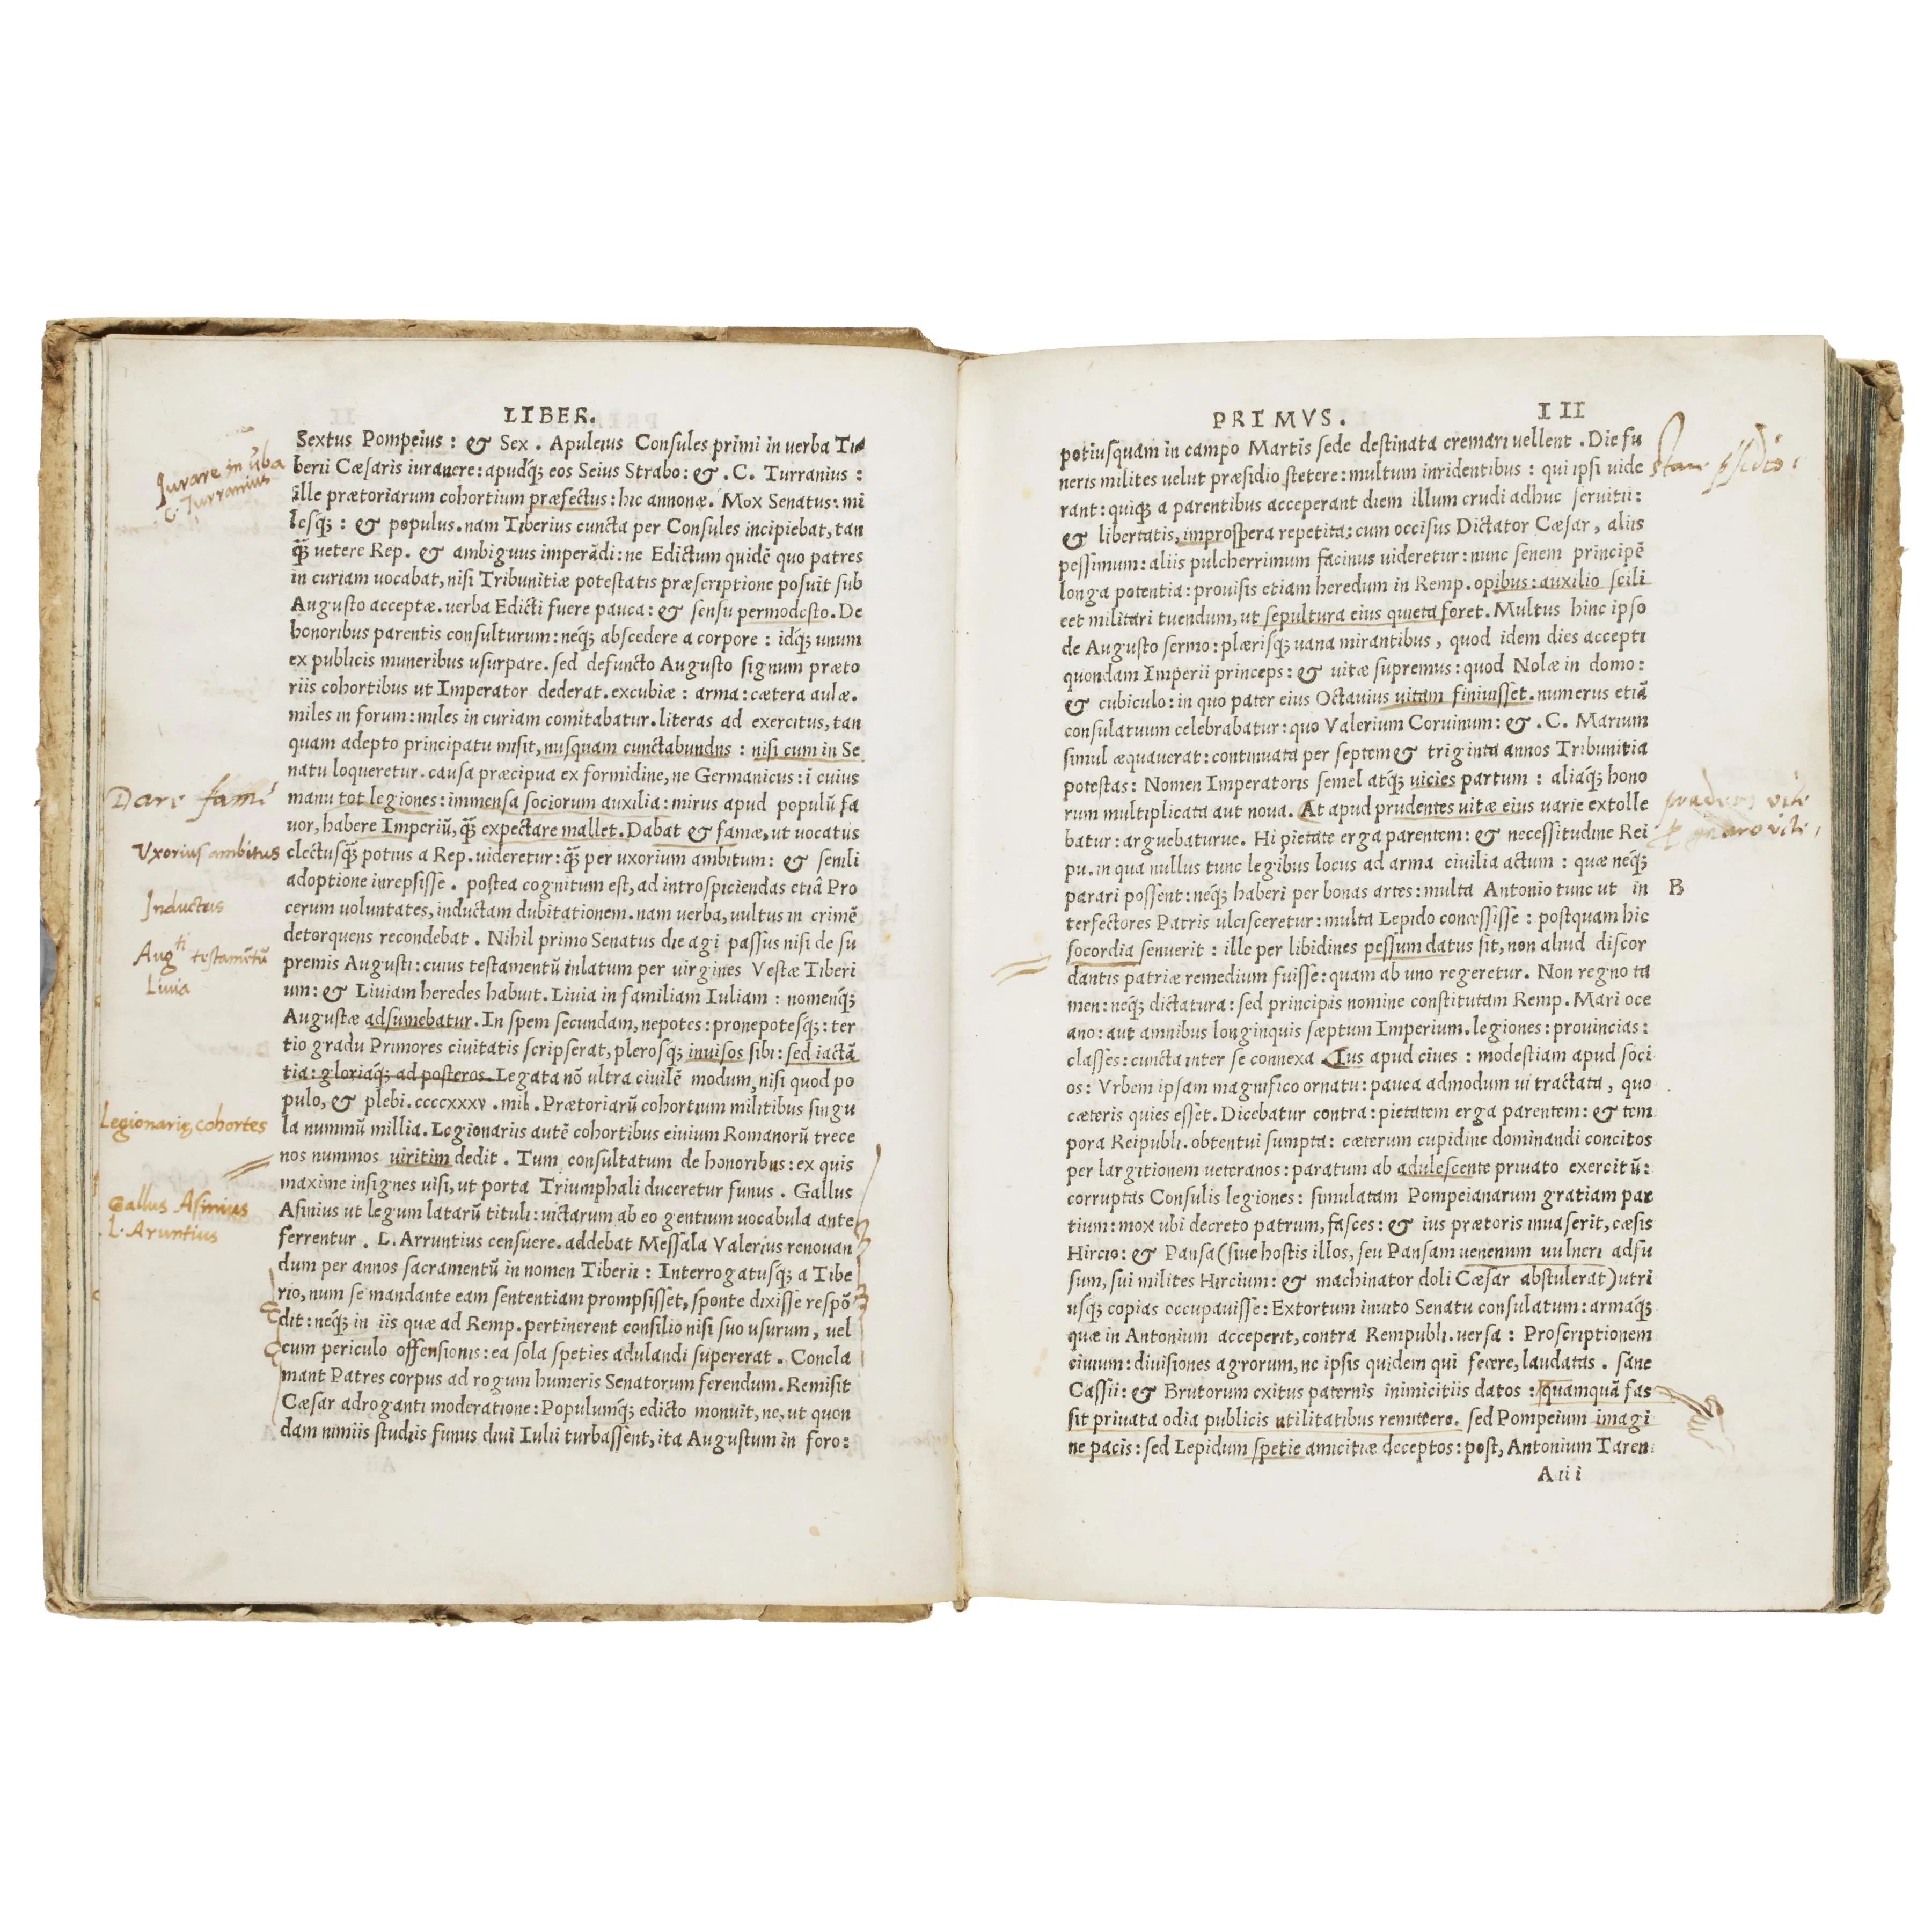 LIBER.
Sextus Pompeius: & Sex. Apuleius Consules primi in uerba Ti
Jurare in ũba
berii Cæsaris iurauere: apudq́; eos Seius Strabo: &. C. Turranius:
C. Turranius
ille prætoriarum cohortium præfectus: hic annonæ. Mox Senatus: mi
lesq́;: & populus. nam Tiberius cuncta per Consules incipiebat, tan
q̃ uetere Rep. & ambiguus imperãdi: ne Edictum quidẽ quo patres
in curiam uocabat, nisi Tribunitiæ potestatis præscriptione posuit sub
Augusto acceptæ. uerba Edicti fuere pauca: & sensu permodesto. De
honoribus parentis consulturum: neq́; abscedere a corpore: idq́; unum
ex publicis muneribus usurpare. sed defuncto Augusto signum præto
riis cohortibus ut Imperator dederat. excubiæ: arma: cætera aulæ.
miles in forum: miles in curiam comitabatur. literas ad exercitus, tan
quam adepto principatu misit, nusquam cunctabundus: nisi cum in Se
natu loqueretur. causa præcipua ex formidine, ne Germanicus: i cuius
Dare famẽ
manu tot legiones: immensa sociorum auxilia: mirus apud populũ fa
uor, habere Imperiũ, q̃ expectare mallet. Dabat & famæ, ut uocatus
Uxorius ambitus
electusq̃ potius a Rep. uideretur: q̃ per uxorium ambitum: & senili
adoptione inrepsisse. postea cognitum est, ad introspiciendas etiã Pro
Inductus
cerum uoluntates, inductam dubitationem. nam uerba, uultus in crimẽ
detorquens recondebat. Nihil primo Senatus die agi passus nisi de su
Aug^ti testamẽtũ
premis Augusti: cuius testamentũ inlatum per uirgines Vestæ Tiberi
Liuia
um: & Liuiam heredes habuit. Liuia in familiam Iuliam: nomenq́;
Augustæ adsumebatur. In spem secundam, nepotes: pronepotesq́;: ter
tio gradu Primores ciuitatis scripserat, plerosq́; inuisos sibi: sed iactã
tia: gloriaq́; ad posteros. Legata nõ ultra ciuilẽ modum, nisi quod po
pulo, & plebi. ccccxxxv. mil. Prætoriarũ cohortium militibus singu
Legionarię cohortes
la nummũ millia. Legionariis autẽ cohortibus ciuium Romanorũ trece
nos nummos uiritim dedit. Tum consultatum de honoribus: ex quis
maxime insignes uisi, ut porta Triumphali duceretur funus. Gallus
Gallus Asinius
Asinius ut legum latarũ tituli: uictarum ab eo gentium uocabula ante
L. Aruntius
ferrentur. L. Arruntius censuere. addebat Messala Valerius renouan
dum per annos sacramentũ in nomen Tiberii: Interrogatusq́; a Tibe
rio, num se mandante eam sententiam prompsisset, sponte dixisse respõ
dit: neq́; in iis quæ ad Remp. pertinerent consilio nisi suo usurum, uel
cum periculo offensionis: ea sola speties adulandi supererat. Concla
mant Patres corpus ad rogum humeris Senatorum ferendum. Remisit
Cæsar adroganti moderatione: Populumq́; edicto monuit, ne, ut quon
dam nimiis studiis funus diui Iulii turbassent, ita Augustum in foro:
PRIMVS. III
potiusquam in campo Martis sede destinata cremari uellent. Die fu
neris milites uelut præsidio stetere: multum inridentibus: qui ipsi uide
rant: quiq́; a parentibus acceperant diem illum crudi adhuc seruitii:
& libertatis, improspera repetita: cum occisus Dictator Cæsar, aliis
pessimum: aliis pulcherrimum facinus uideretur: nunc senem principẽ
longa potentia: prouisis etiam heredum in Remp. opibus: auxilio scili
cet militari tuendum, ut sepultura eius quieta foret. Multus hinc ipso
de Augusto sermo: plærisq́; uana mirantibus, quod idem dies accepti
quondam Imperii princeps: & uitæ supremus: quod Nolæ in domo:
& cubiculo: in quo pater eius Octauius uitam finiuisset. numerus etiã
consulatuum celebrabatur: quo Valerium Coruinum: &. C. Marium
simul æquauerat: continuata per septem & triginta annos Tribunitia
potestas: Nomen Imperatoris semel atq́; uicies partum: aliaq́; hono
rum multiplicata aut noua. At apud prudentes uitæ eius uarie extolle
batur: arguebaturue. Hi pietate erga parentem: & necessitudine Rei
pu. in qua nullus tunc legibus locus ad arma ciuilia actum: quæ neq́;
parari possent: neq́; haberi per bonas artes: multa Antonio tunc ut in B
terfectores Patris ulcisceretur: multa Lepido concessisse: postquam hic
socordia senuerit: ille per libidines pessum datus sit, non aliud discor
dantis patriæ remedium fuisse: quam ab uno regeretur. Non regno ta
men: neq́; dictatura: sed principis nomine constitutam Remp. Mari oce
ano: aut amnibus longinquis sæptum Imperium. legiones: prouincias:
classes: cuncta inter se connexa. Ius apud ciues: modestiam apud soci
os: Vrbem ipsam magnifico ornatu: pauca admodum ui tractata, quo
cæteris quies esset. Dicebatur contra: pietatem erga parentem: & tem
pora Reipubli. obtentui sumpta: cæterum cupidine dominandi concitos
per largitionem ueteranos: paratum ab adulescente priuato exercitũ:
corruptas Consulis legiones: simulatam Pompeianarum gratiam par
tium: mox ubi decreto patrum, fasces: & ius prætoris inuaserit, cæsis
Hircio: & Pansa (siue hostis illos, seu Pansam uenenum uulneri adfu
sum, sui milites Hircium: & machinator doli Cæsar abstulerat) utri
usq́; copias occupauisse: Extortum inuito Senatu consulatum: armaq́;
quæ in Antonium acceperit, contra Rempubli. uersa: Proscriptionem
ciuium: diuisiones agrorum, ne ipsis quidem qui fecere, laudatas. sane
Cassii: & Brutorum exitus paternis inimicitiis datos: quamquã fas
sit priuata odia publicis utilitatibus remittere. sed Pompeium imagi
ne pacis: sed Lepidum spetie amicitiæ deceptos: post, Antonium Taren
A iii